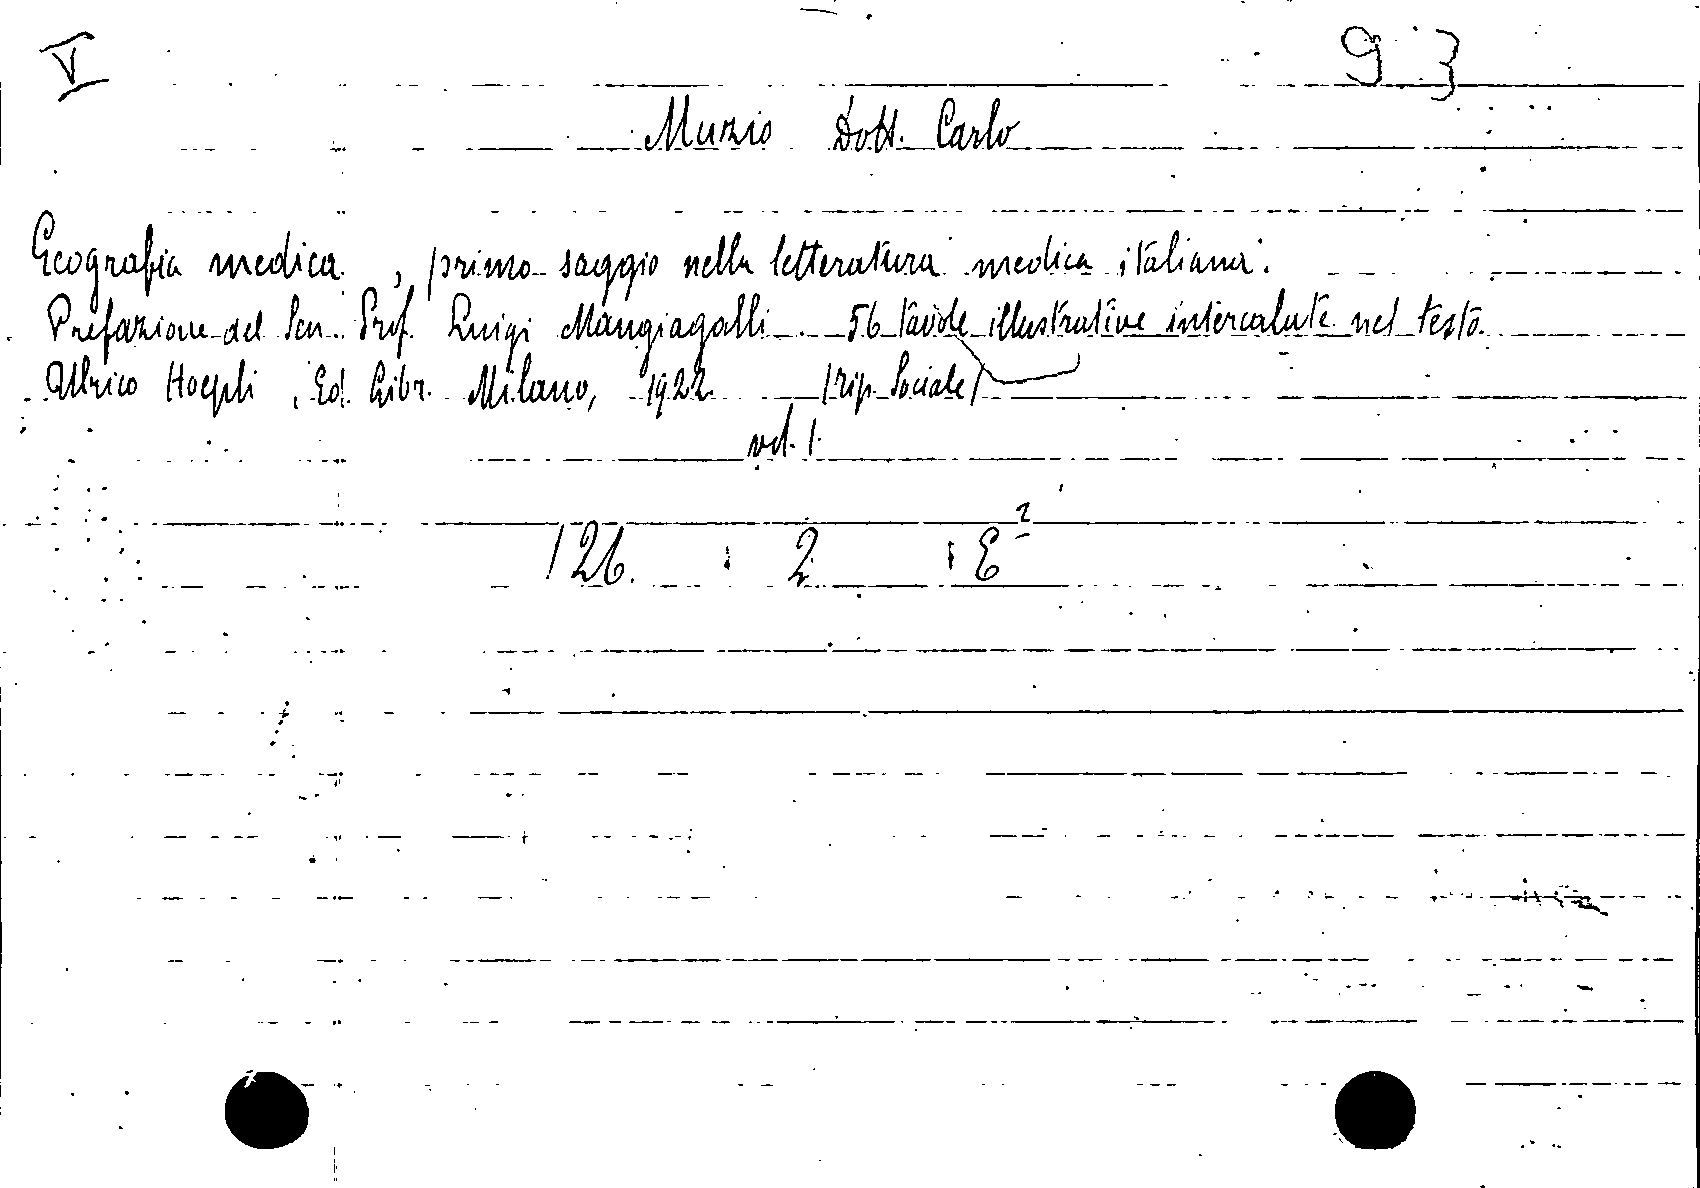 V 93
Muzio Dott. Carlo
Geografia medica, primo saggio nella letteratura medica italiana.
Prefazione del Sen. Prof. Luigi Mangiagalli. 56 tavole illustrative intercalate nel testo.
Ulrico Hoepli, Ed. Libr. Milano, 1922 (rip. Sociale)
vol. 1.
126 : 2 : E²